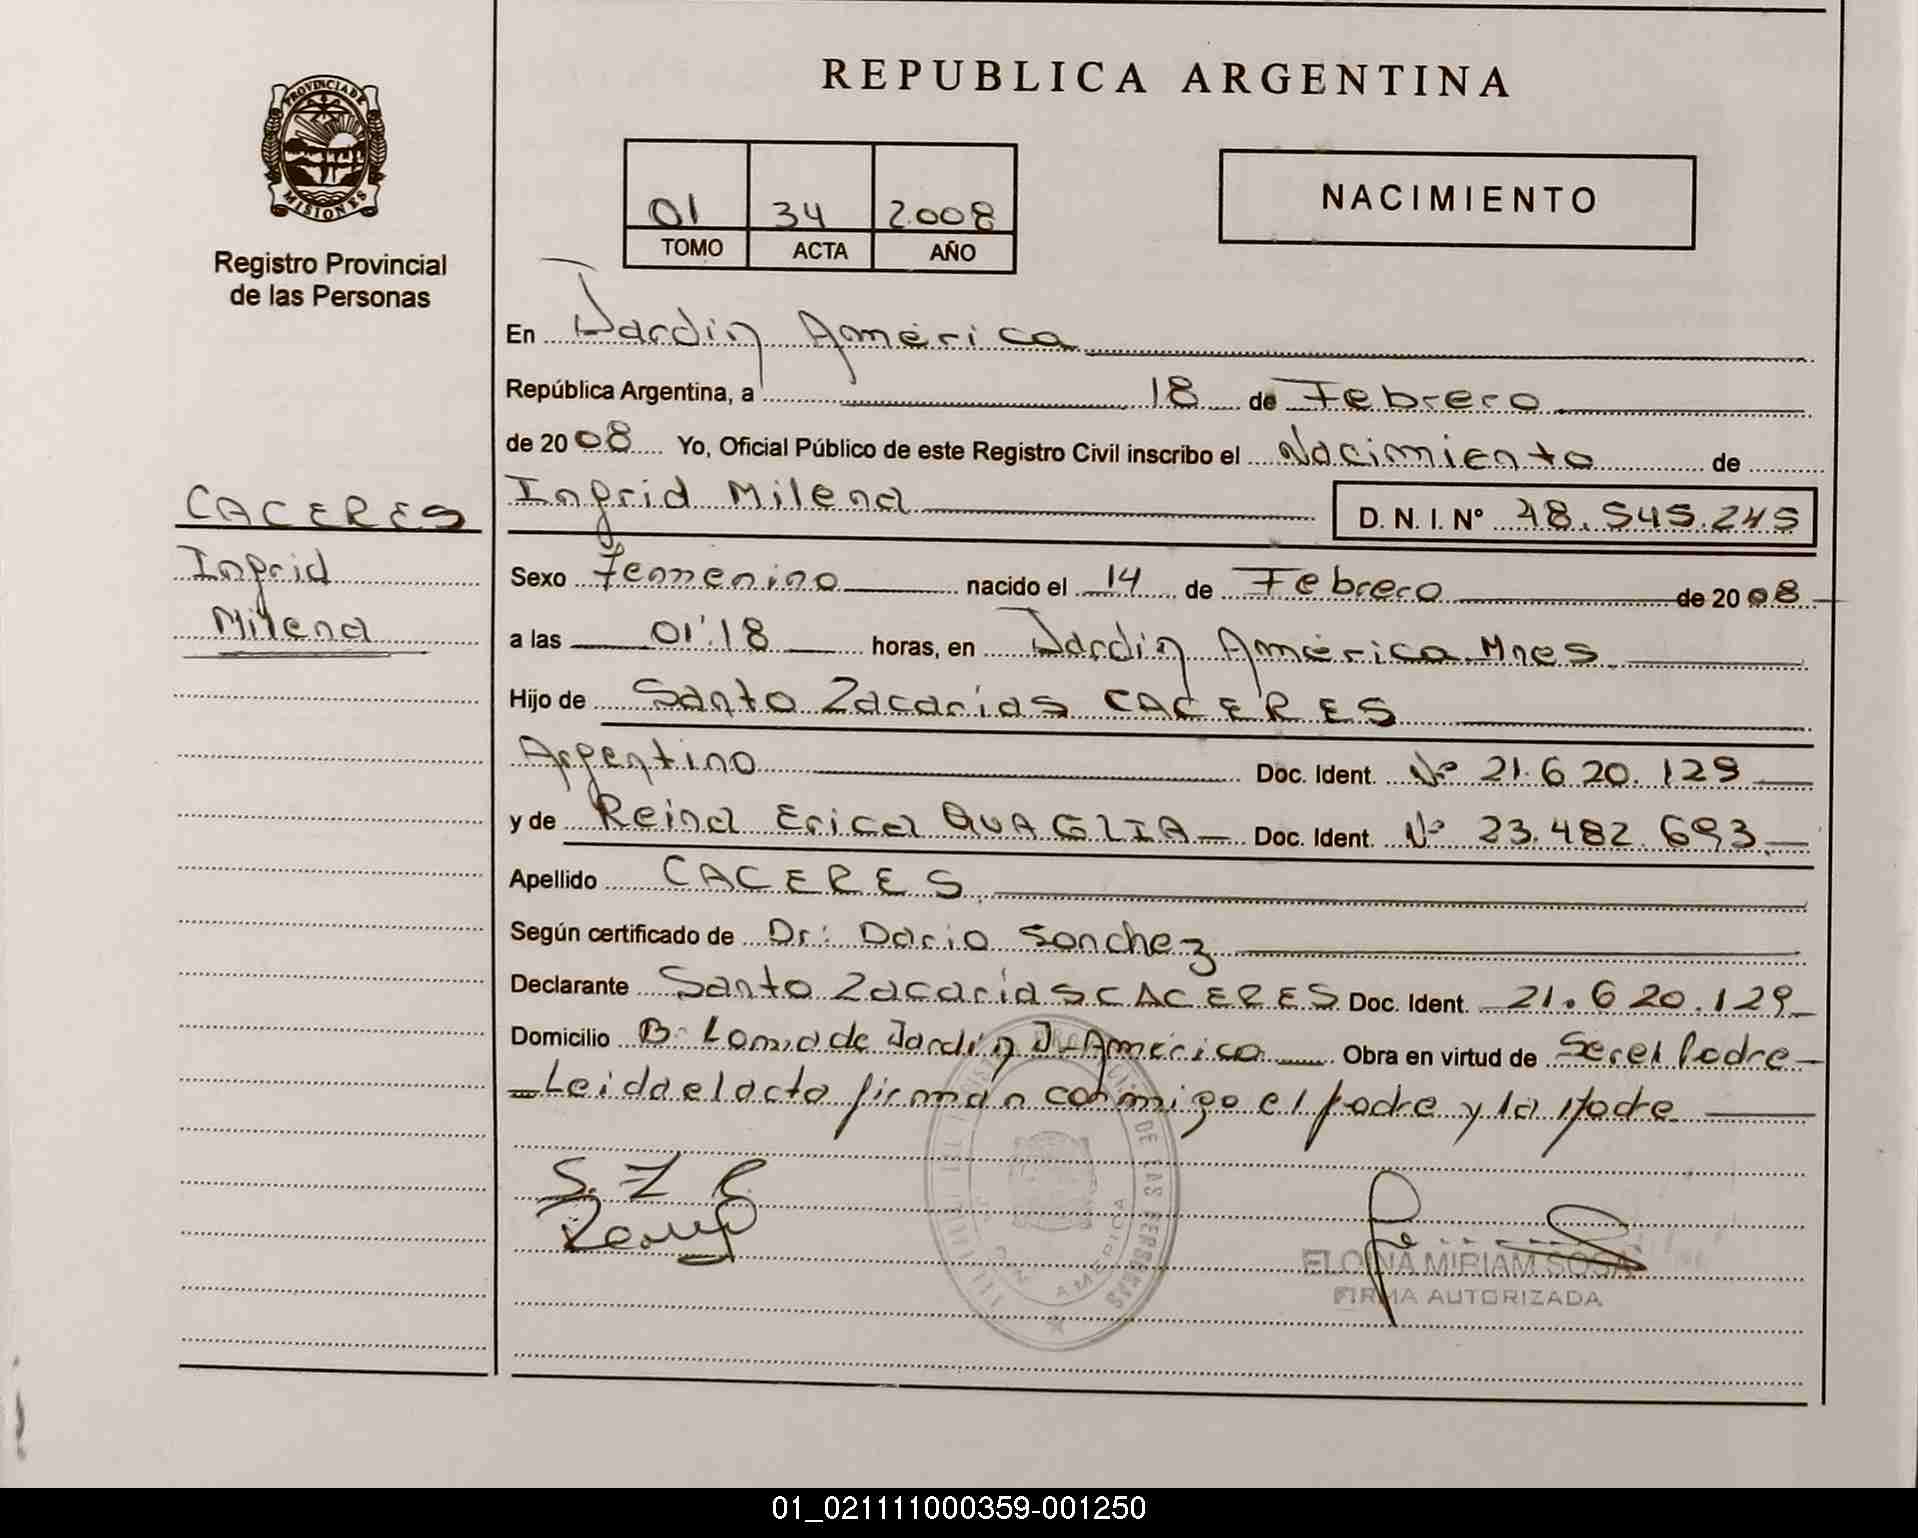 PROVINCIA DE
MISIONES
Registro Provincial
de las Personas
CACERES
Ingrid
Milena
REPUBLICA ARGENTINA
01 34 2008
TOMO ACTA AÑO
NACIMIENTO
En Jardín América
República Argentina, a 18 de Febrero
de 2008 Yo, Oficial Público de este Registro Civil inscribo el Nacimiento de
Ingrid Milena D. N. I. Nº 48.545.245
Sexo Femenino nacido el 14 de Febrero de 2008
a las 01:18 horas, en Jardín América Mnes
Hijo de Santo Zacarías CACERES
Argentino Doc. Ident. Nº 21.620.129
y de Reina Erica QUAGLIA Doc. Ident. Nº 23.482.693
Apellido CACERES
Según certificado de Dr: Dario Sanchez
Declarante Santo Zacarías CACERES Doc. Ident. 21.620.129
Domicilio Bº Loma de Jardín J-América Obra en virtud de Ser el Padre
Leida el acta firman conmigo el padre y la Madre
S. Z. C.
ELOINA MIRIAM SOSA
FIRMA AUTORIZADA
DE LAS PERSONAS
AMERICA
01_021111000359-001250